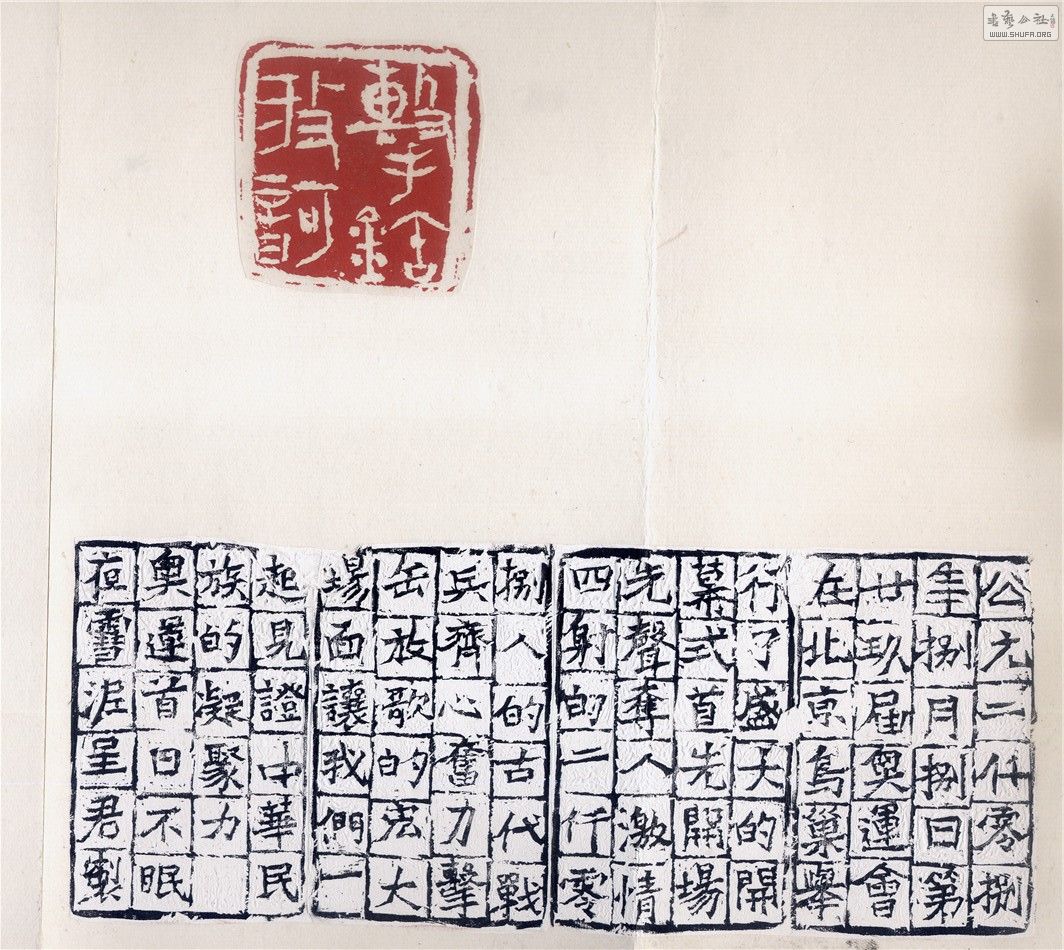 書藝公社
WWW.SHUFA.ORG
擊
公元二仟零捌
年捌月捌日第
廿玖届奧運會
在北京鳥巢舉
行了盛大的開
幕式首先開場
先聲奪人激情
四射的二仟零
捌人的古代戰
兵齊心奮力擊
缶放歌的宏大
場面讓我們一
起見證中華民
族的凝聚力
奧運首日不眠
夜雪泥呈君製